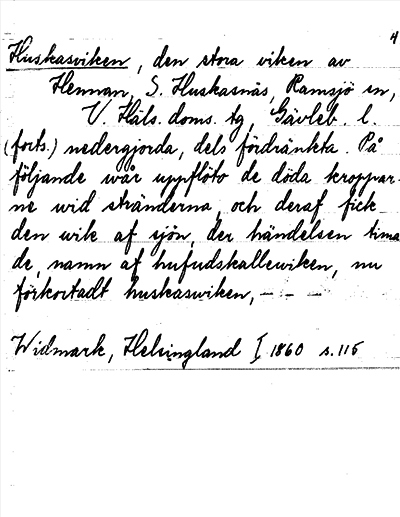 4
Huskasviken, den stora viken av
Hennan, S. Huskasnäs, Ramsjö sn,
V. Häls. doms. tg, Gävleb. l.
(forts.) nedergjorda, dels fördränkta. På
följande wår uppflöto de döda kroppar-
ne wid stränderna, och deraf fick
den wik af sjön, der händelsen tima
de, namn af hufudskallewiken, nu
förkortadt huskaswiken, - - -
Widmark, Helsingland I 1860 s. 115